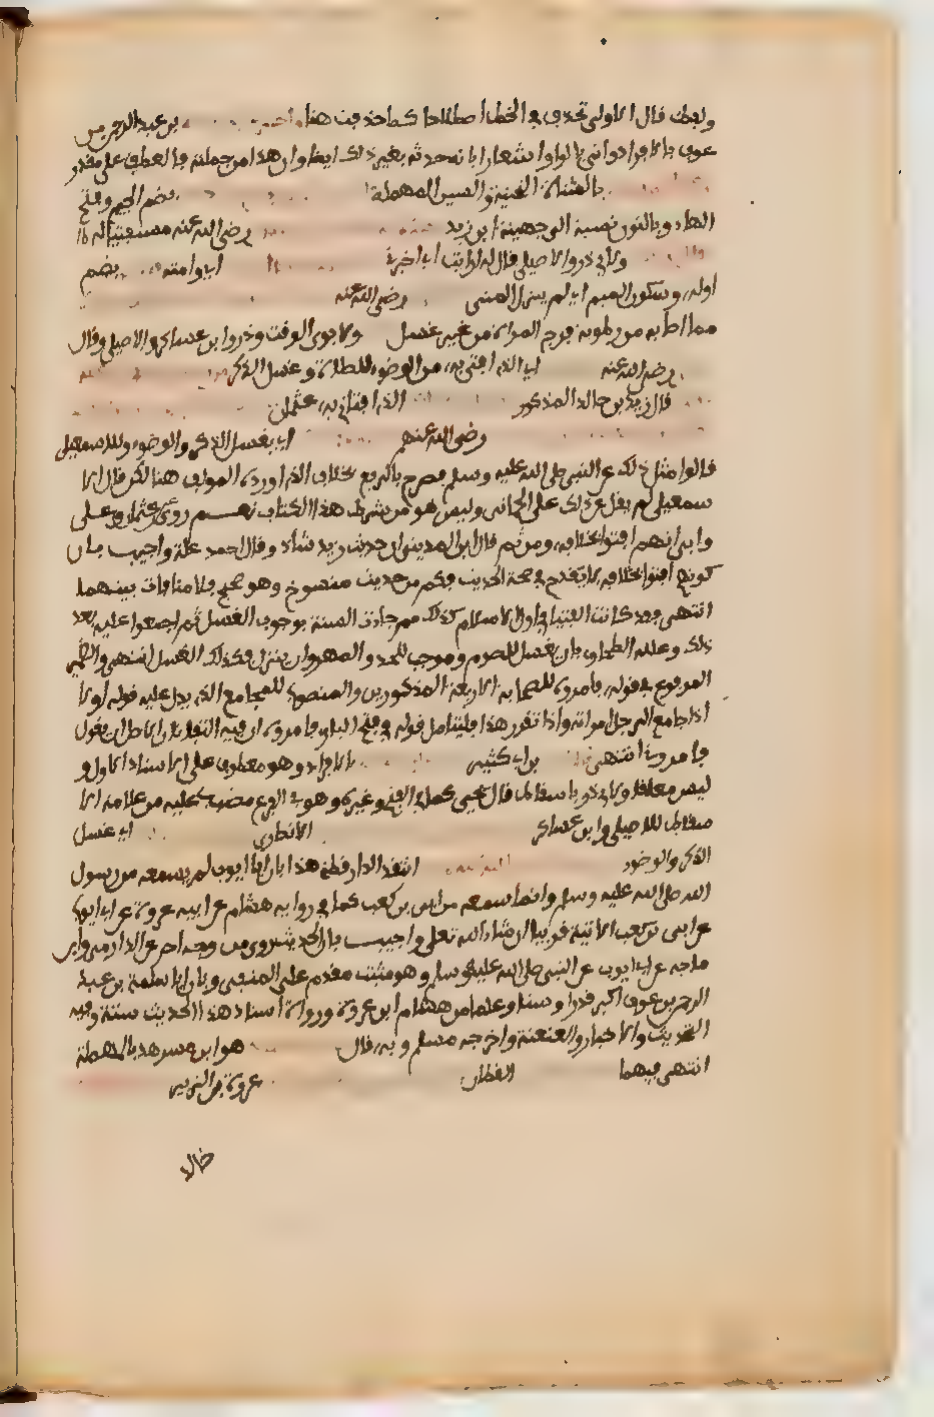 ولفظ قال الاولى تحذف في الخط اصطلاحا كما حذفت هنا بن عبد الرحمن بن
عوف بالافراد واتى بالواو اشعارا بانه حدثه بغير ذلك ايضا وان هذا من جملته فالعطف على مقدر
بالمثناة التحتية والسين المهملة بضم الجيم وفتح
الهاء وبالنون نسبة الى جهينة ابن زيد رضي الله عنه مستفتيا له
ولابي ذر والاصيلي قال له ارايت اي اخبرني اي وامته بضم
اوله وسكون الميم اي لم ينزل المني رضي الله عنه
مما اصابه من رطوبة فرج المراة من غير غسل ولابوي الوقت وذر وابن عساكر والاصيلي وقال
رضي الله عنه اي الذي افتى به من الوضوء للصلاة وغسل الذكر
قال زيد بن خالد المذكور الذي افتاني به عثمان
رضي الله عنهم اي بغسل الذكر والوضوء وللاسمعيلي
فقالوا مثل ذلك عن النبي صلى الله عليه وسلم فصرح بالرفع بخلاف الذي اورده المولف هنا لكن قال الا
سمعيلي لم يقل غير ذلك على الحماني وليس هو من شرط هذا الكتاب نعم روي عن عثمان وعلي
وابي انهم افتوا بخلافه ومن ثم قال ابن المديني ان حديث زيد شاذ وقال احمد علة واجيب بان
كونهم افتوا بخلافه لا يقدح في صحة الحديث فكم من حديث منسوخ وهو صحيح فلا منافاة بينهما
انتهى فقد كانت الفتيا في اول الاسلام كذلك ثم جاءت السنة بوجوب الغسل ثم اجمعوا عليه بعد
ذلك وعلله الطحاوي بان مفسد للصوم وموجب للحد والمهر وان لم ينزل فكذلك الغسل انتهى والضمير
المرفوع في قوله فامروه للصحابة الاربعة المذكورين والمنصوب للمجامع الذي يدل عليه قوله اولا
اذا جامع الرجل امراته واذا تقرر هذا فليتامل قوله في فتح الباري فامروه ان فيه التفاتا لان الاصل ان يقول
فامروني انتهى بن ابي كثير بالافراد وهو معطوف على الاسناد الاول و
ليس معلقا ولابي ذر باسقاط قال يحيى كما في الفتح وغيره وهو في الفرع مضبب عليه مع علامة الا
سقاط للاصيلي وابن عساكر الانصاري اي غسل
الذكر والوضوء انتقد الدارقطني هذا بان ابا ايوب لم يسمعه من رسول
الله صلى الله عليه وسلم وانما سمعه من ابي بن كعب كما في رواية هشام عن ابيه عروة عن ابي ايوب
عن ابي بن كعب الاتية قريبا ان شاء الله تعلى واجيب بان الحديث روي من وجه اخر عن الدارمي وابن
ماجه عن ابي ايوب عن النبي صلى الله عليه وسلم وهو مثبت مقدم على المنفي وبان ابا سلمة بن عبد
الرحمن بن عوف اكبر قدرا وسنا وعلما من هشام ابن عروة ورواة اسناد هذا الحديث ستة وفيه
التحديث والاخبار والعنعنة واخرجه مسلم وبه قال هو ابن مسرهد بالمهملة
انتهى فيهما القطان عروة بن الزبير
قال